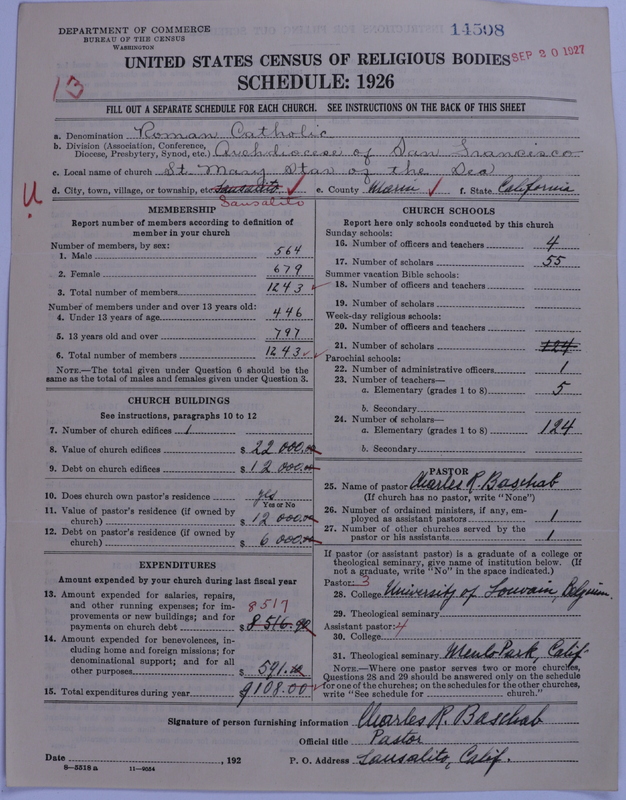 DEPARTMENT OF COMMERCE
BUREAU OF THE CENSUS
WASHINGTON
14508
SEP 20 1927
UNITED STATES CENSUS OF RELIGIOUS BODIES
SCHEDULE: 1926
13
FILL OUT A SEPARATE SCHEDULE FOR EACH CHURCH. SEE INSTRUCTIONS ON THE BACK OF THIS SHEET
a. Denomination Roman Catholic
b. Division (Association, Conference, Diocese, Presbytery, Synod, etc.) Archdiocese of San Francisco
c. Local name of church St. Mary Star of the Sea
d. City, town, village, or township, etc. Sausalito ✓ e. County Marin ✓ f. State California
Sausalito
MEMBERSHIP
Report number of members according to definition of
member in your church
Number of members, by sex:
1. Male 564
2. Female 679
3. Total number of members 1243 ✓
Number of members under and over 13 years old:
4. Under 13 years of age 446
5. 13 years old and over 797
6. Total number of members 1243 ✓
NOTE.—The total given under Question 6 should be
same as the total of males and females given under Question 3.
CHURCH BUILDINGS
See instructions, paragraphs 10 to 12
7. Number of church edifices 1
8. Value of church edifices $ 22 000.00
9. Debt on church edifices $ 12 000.00
10. Does church own pastor's residence yes
Yes or No
11. Value of pastor's residence (if owned by
church) $ 12 000.00
12. Debt on pastor's residence (if owned by
church) $ 6 000.00
EXPENDITURES
Amount expended by your church during last fiscal year
13. Amount expended for salaries, repairs,
and other running expenses; for im-
provements or new buildings; and for
payments on church debt $ 8516.90
8517
14. Amount expended for benevolences, in-
cluding home and foreign missions; for
denominational support; and for all
other purposes $ 591.20
15. Total expenditures during year 9108.00 ✓
CHURCH SCHOOLS
Report here only schools conducted by this church
Sunday schools:
16. Number of officers and teachers 4
17. Number of scholars 55
Summer vacation Bible schools:
18. Number of officers and teachers
19. Number of scholars
Week-day religious schools:
20. Number of officers and teachers
21. Number of scholars 124
Parochial schools:
22. Number of administrative officers 1
23. Number of teachers—
a. Elementary (grades 1 to 8) 5
b. Secondary
24. Number of scholars—
a. Elementary (grades 1 to 8) 124
b. Secondary
PASTOR
25. Name of pastor Charles R. Baschab
(If church has no pastor, write "None")
26. Number of ordained ministers, if any, em-
ployed as assistant pastors 1
27. Number of other churches served by the
pastor or his assistants 1
If pastor (or assistant pastor) is a graduate of a college or
theological seminary, give name of institution below. (If
not a graduate, write "No" in the space indicated.)
Pastor: 3
28. College University of Louvain, Belgium.
29. Theological seminary
Assistant pastor: 4
30. College
31. Theological seminary Menlo Park, Calif.
NOTE.—Where one pastor serves two or more churches,
Questions 28 and 29 should be answered only on the schedule
for one of the churches; on the schedules for the other churches,
write "See schedule for church."
Signature of person furnishing information Charles R. Baschab
Official title Pastor
Date , 192 P. O. Address Sausalito, Calif.
8—5518 a 11—9054